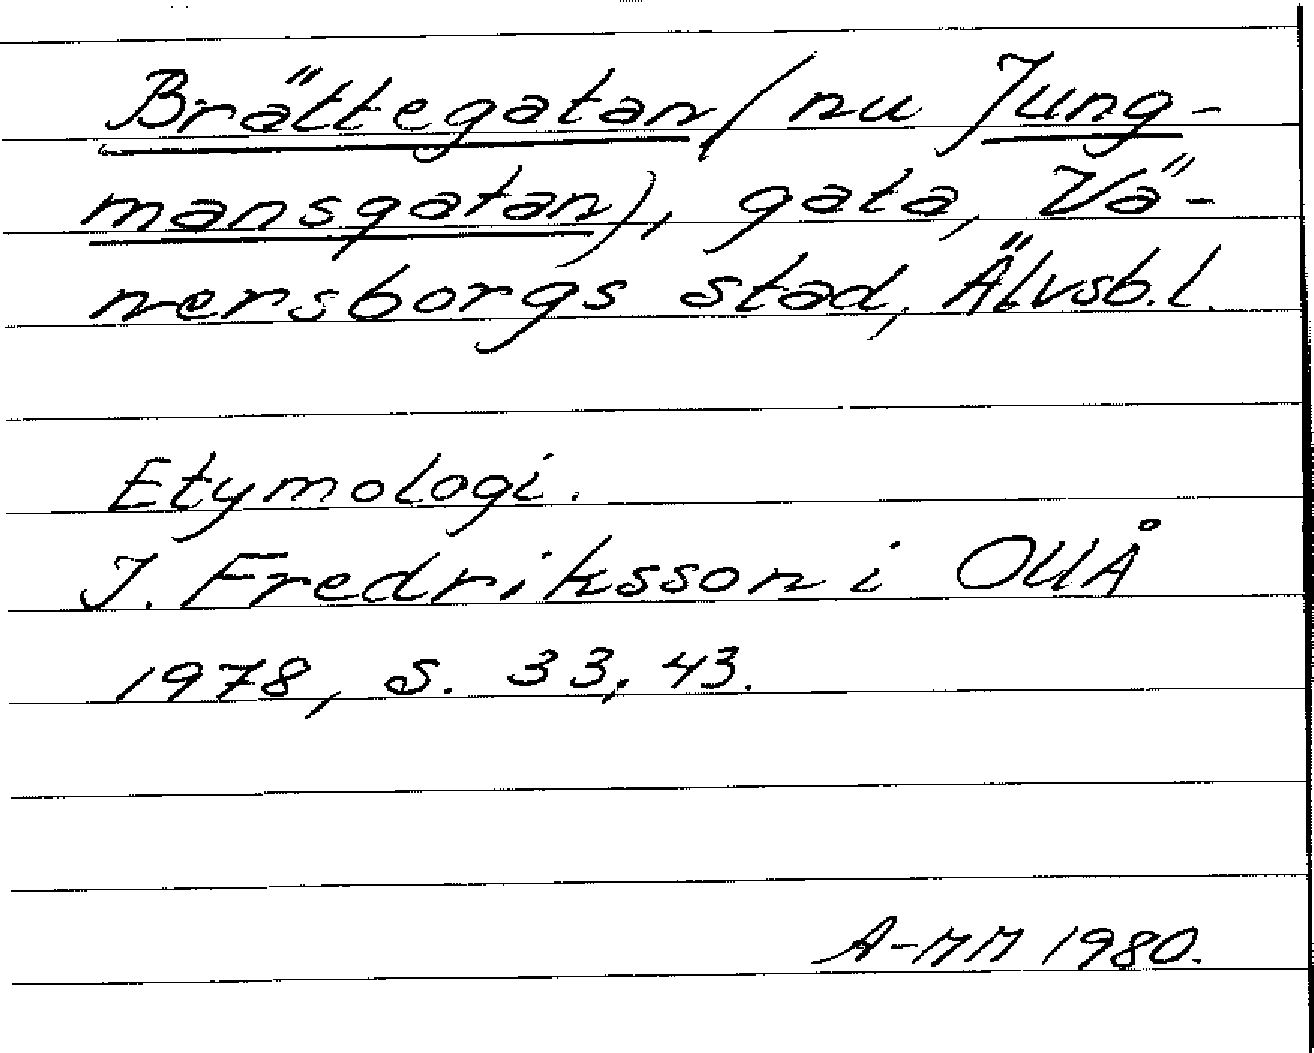 Brättegatan (nu Jung-
mansgatan), gata, Vä-
nersborgs stad, Älvsb. l.
Etymologi.
I. Fredriksson i OUÅ
1978, s. 33, 43.
A-MM 1980.